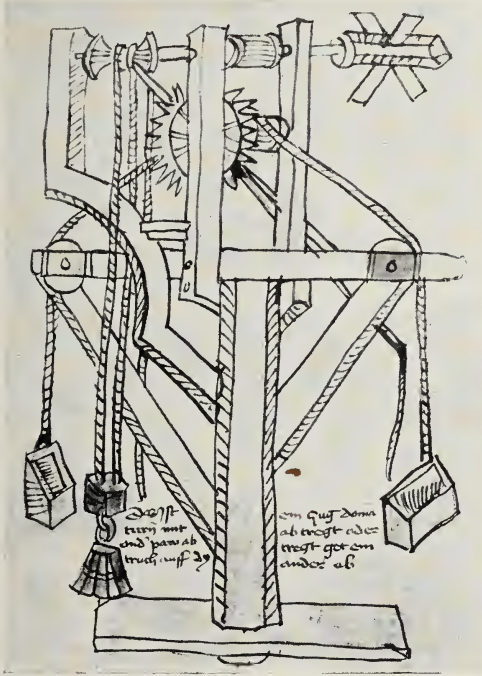 Das ist
turn mit
und paw ab
pruch auff dy
ein Zug Doma
ab tregt oder
tregt get ein
ander ab